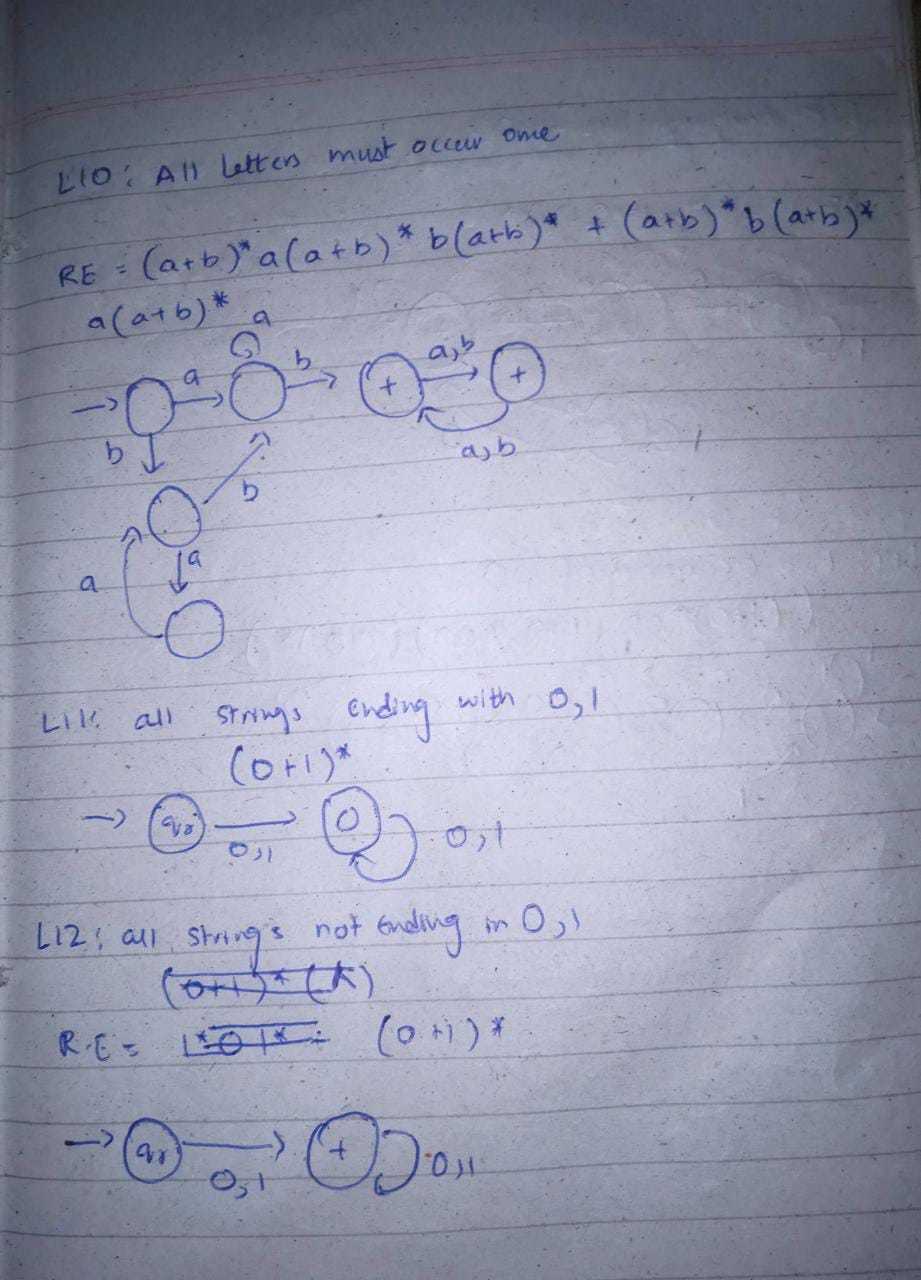 L10: All letters must occur one
RE = (a+b)* a(a+b)* b(a+b)* + (a+b)* b(a+b)*
a(a+b)*
a
a b + a,b +
b a,b
b
a a
L11: all strings ending with 0,1
(0+1)*
0,1 0,1
L12: all strings not ending in 0,1
R.E = (0+1)*
+ 0,1
0,1